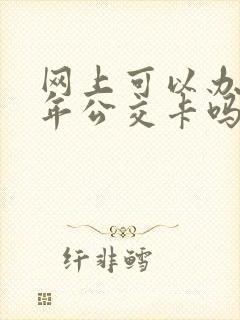 网上可以办
年公交卡吗
纤非鳕